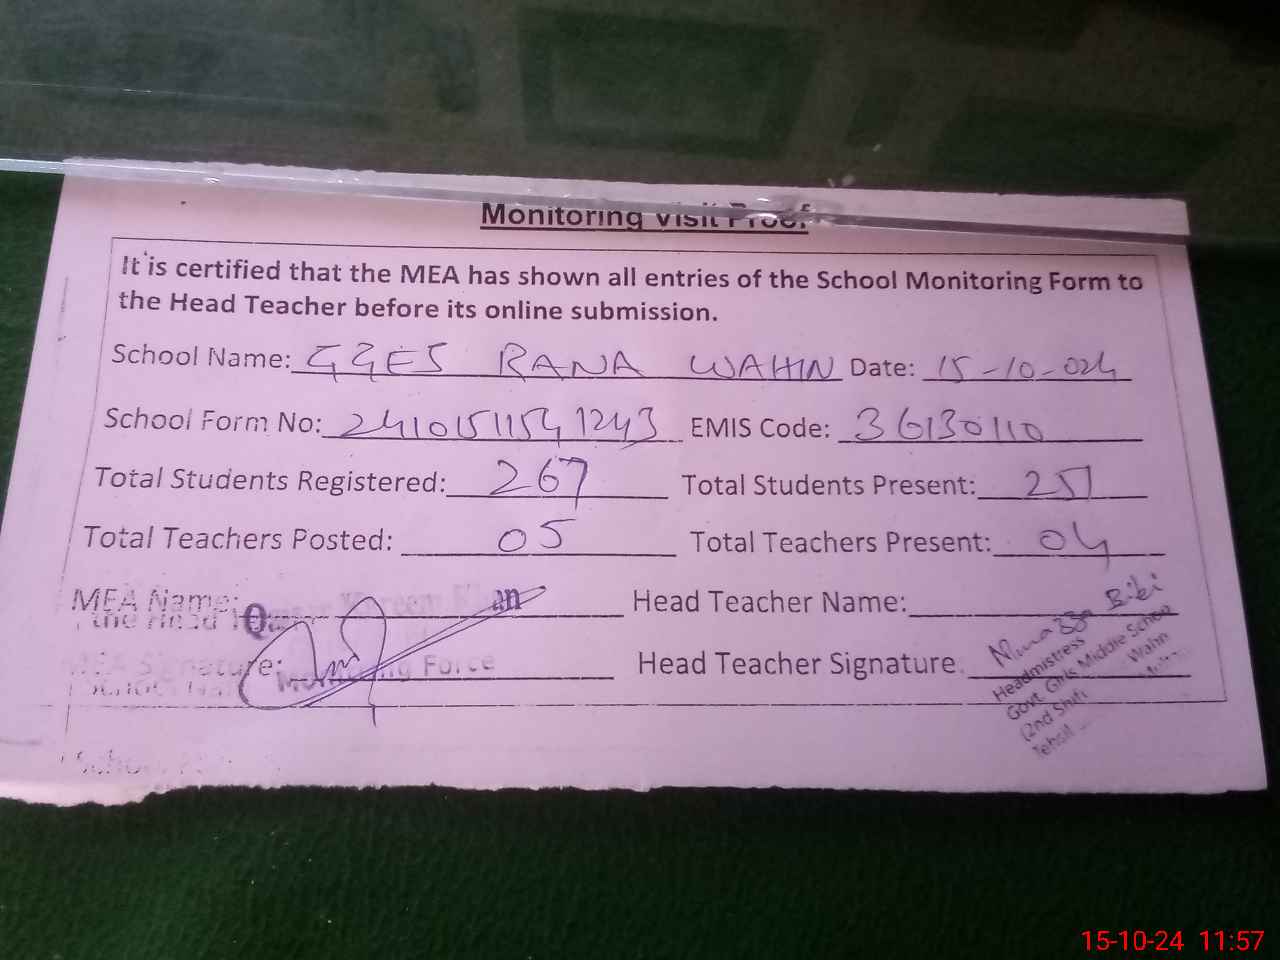 Monitoring Visit Proof
It is certified that the MEA has shown all entries of the School Monitoring Form to
the Head Teacher before its online submission.
School Name: GGES RANA WAHIN Date: 15-10-024
School Form No: 24101511541243 EMIS Code: 36130110
Total Students Registered: 267 Total Students Present: 251
Total Teachers Posted: 05 Total Teachers Present: 04
MEA Name: Head Teacher Name:
the Head
MEA Signature: Monitoring Force Head Teacher Signature
School
Bibi
Headmistress
Govt. Girls Middle School
(2nd Shift Wahn
Tehsil
School
15-10-24 11:57